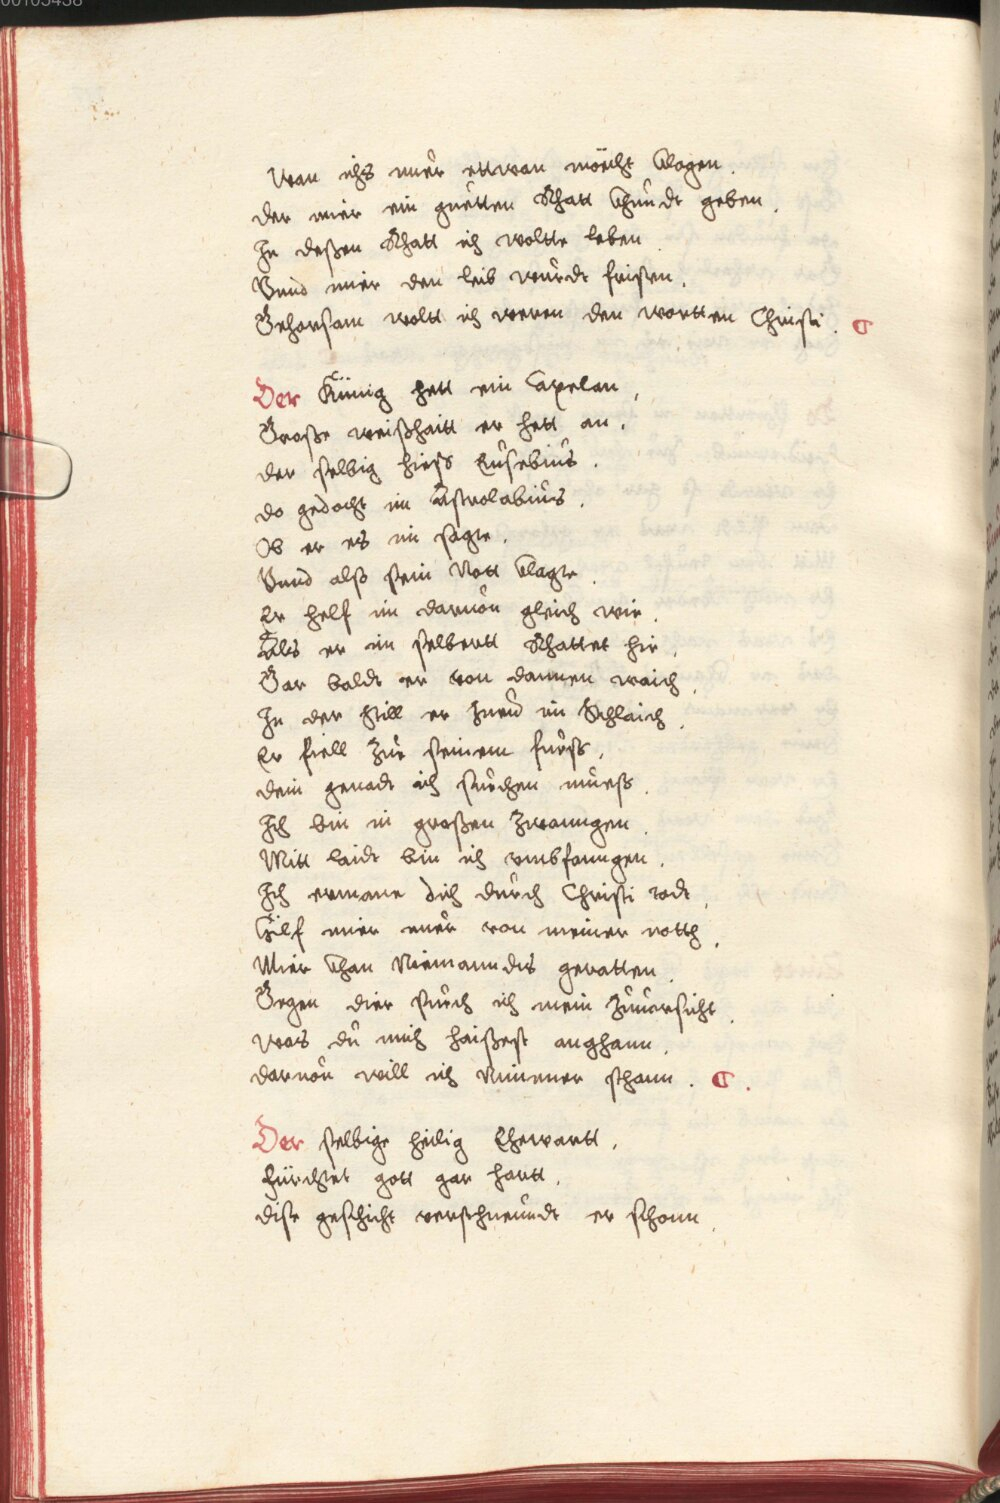 00103438
Wan ichs nuer ettwan möcht klagen.
der mier ein guetten Rhatt khundt geben.
In deßen Rhatt ich woltte leben
Vnnd mier den leib wurdt fristen.
Gehorsam woltt ich weren den wortten Christi.
Der Künig hett ein Capelan,
Große weißhaitt er hett an.
der selbig hiess Eusebius.
do gedocht im Astrolabius.
Ob er es im sagte.
Vnnd alß sein Nott klagte.
Er helf im daruon gleich wie.
Als er im selbertt Rhattet hie.
Gar baldt er von dannen waich.
In der still er zuem im Schlaich.
Er fiell Zue seinem fuess.
dein genadt ich suechen muess.
Ich bin in großen Zwanngen.
Mitt laidt bin ich vmbfanngen.
Ich ermane dich durch Christi todt,
Hilf mier nuer von meiner notth.
Mier khan Niemanndts geratten.
Gegen dier such ich mein Zuuersicht.
was du mich haißest anghann.
daruon will ich Nimmer sthann.
Der selbige heilig Ehewartt.
fürchtet gott gar hartt.
dise geschicht verschneundt er schonn.